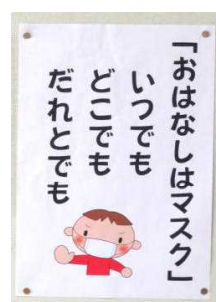 「おはなしはマスク」
いつでも
どこでも
だれとでも